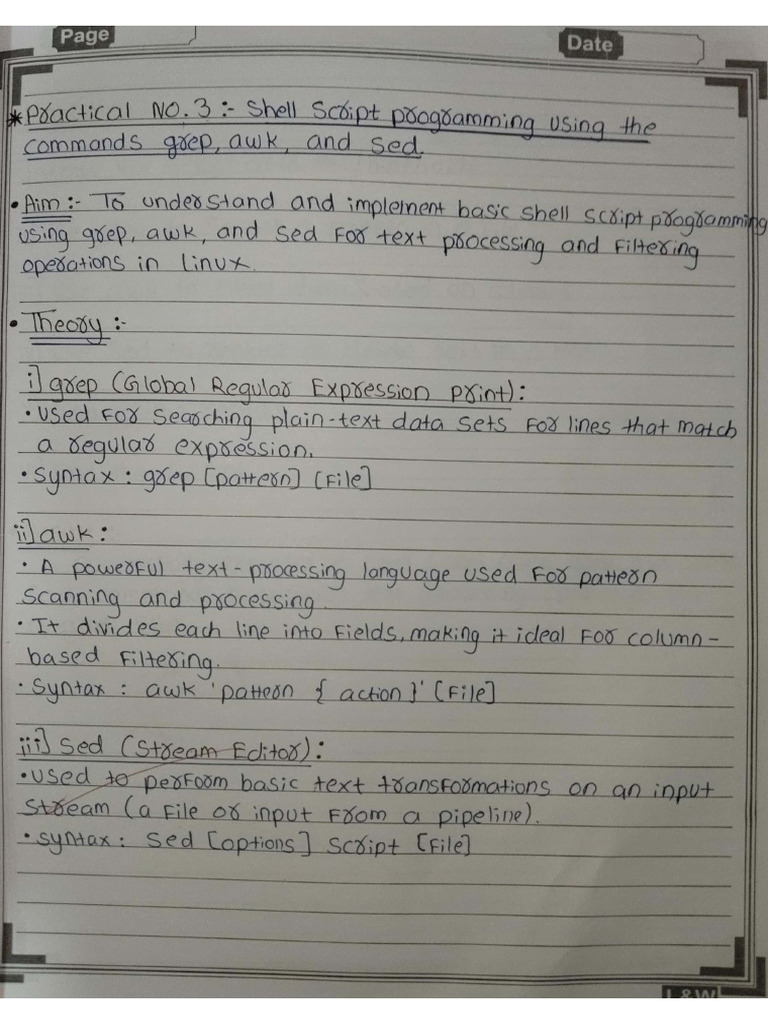 Page
Date
* Practical No. 3 :- Shell Script programming using the
commands grep, awk, and sed.
• Aim :- To understand and implement basic shell script programming
using grep, awk, and sed for text processing and filtering
operations in linux.
• Theory :-
i] grep (Global Regular Expression Print):
• Used for searching plain-text data sets for lines that match
a regular expression.
• Syntax : grep [pattern] [file]
ii] awk :
• A powerful text-processing language used for pattern
scanning and processing.
• It divides each line into fields, making it ideal for column-
based filtering.
• Syntax : awk 'pattern { action }' [file]
iii] sed (Stream Editor) :
• Used to perform basic text transformations on an input
stream (a file or input from a pipeline).
• Syntax : sed [options] script [file]
L&W